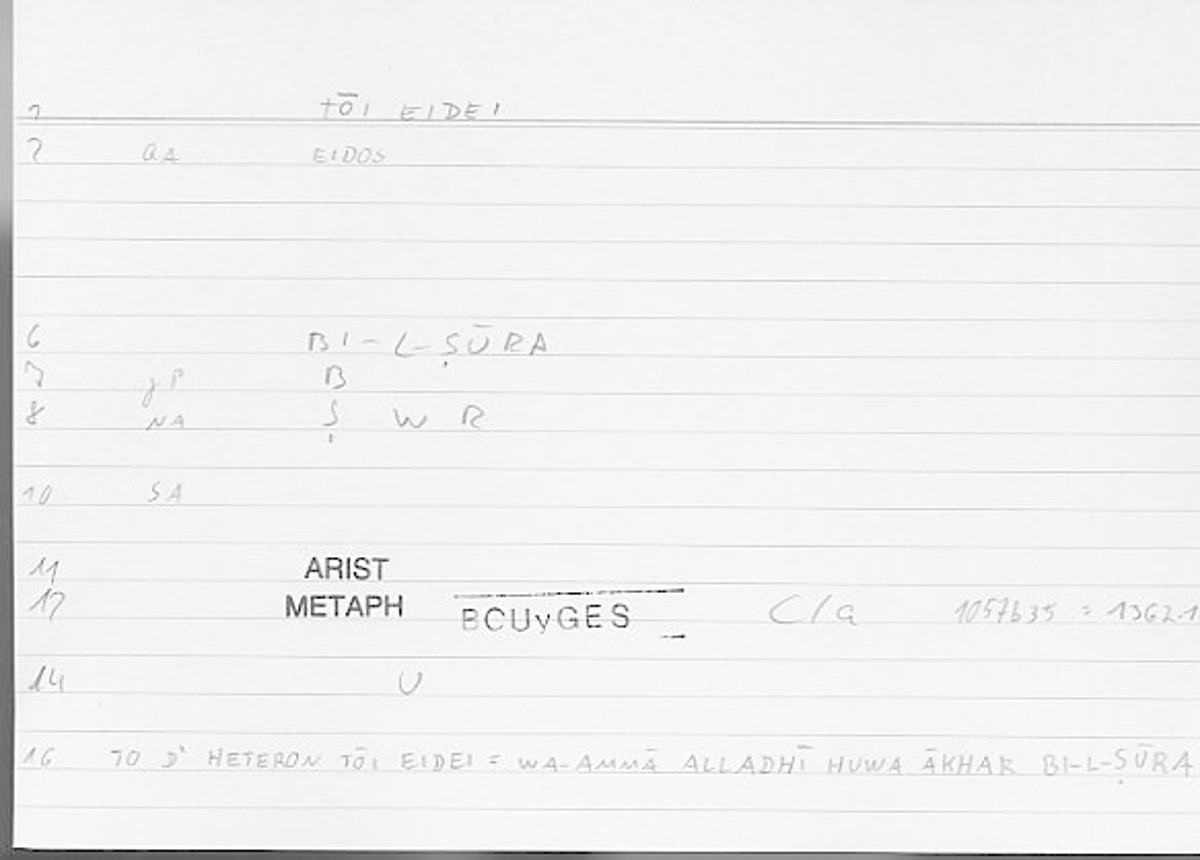 1 TŌI EIDEI
2 aA EIDOS
6 BI-L-ṢŪRA
7 gP B
8 NA Ṣ W R
10 SA
11 ARIST
12 METAPH BCUyGES C/a 1057b35 = 1362.1
14 U
16 TO D' HETERON TŌI EIDEI = WA-AMMĀ ALLADHĪ HUWA ĀKHAR BI-L-ṢŪRA